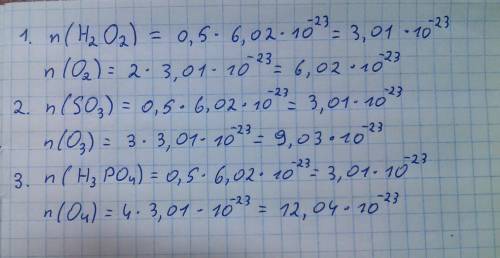 1. n(H₂O₂) = 0,5 · 6,02 · 10⁻²³ = 3,01 · 10⁻²³
n(O₂) = 2 · 3,01 · 10⁻²³ = 6,02 · 10⁻²³
2. n(SO₃) = 0,5 · 6,02 · 10⁻²³ = 3,01 · 10⁻²³
n(O₃) = 3 · 3,01 · 10⁻²³ = 9,03 · 10⁻²³
3. n(H₃PO₄) = 0,5 · 6,02 · 10⁻²³ = 3,01 · 10⁻²³
n(O₄) = 4 · 3,01 · 10⁻²³ = 12,04 · 10⁻²³